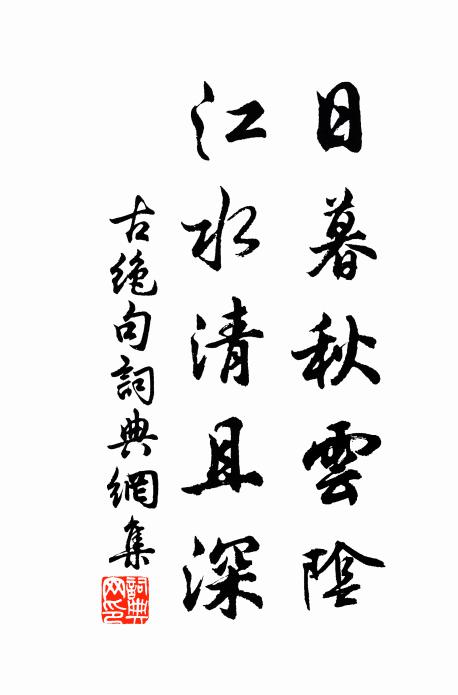 日暮秋雲陰
江水清且深
古絶句詞典網集
詞典
网印